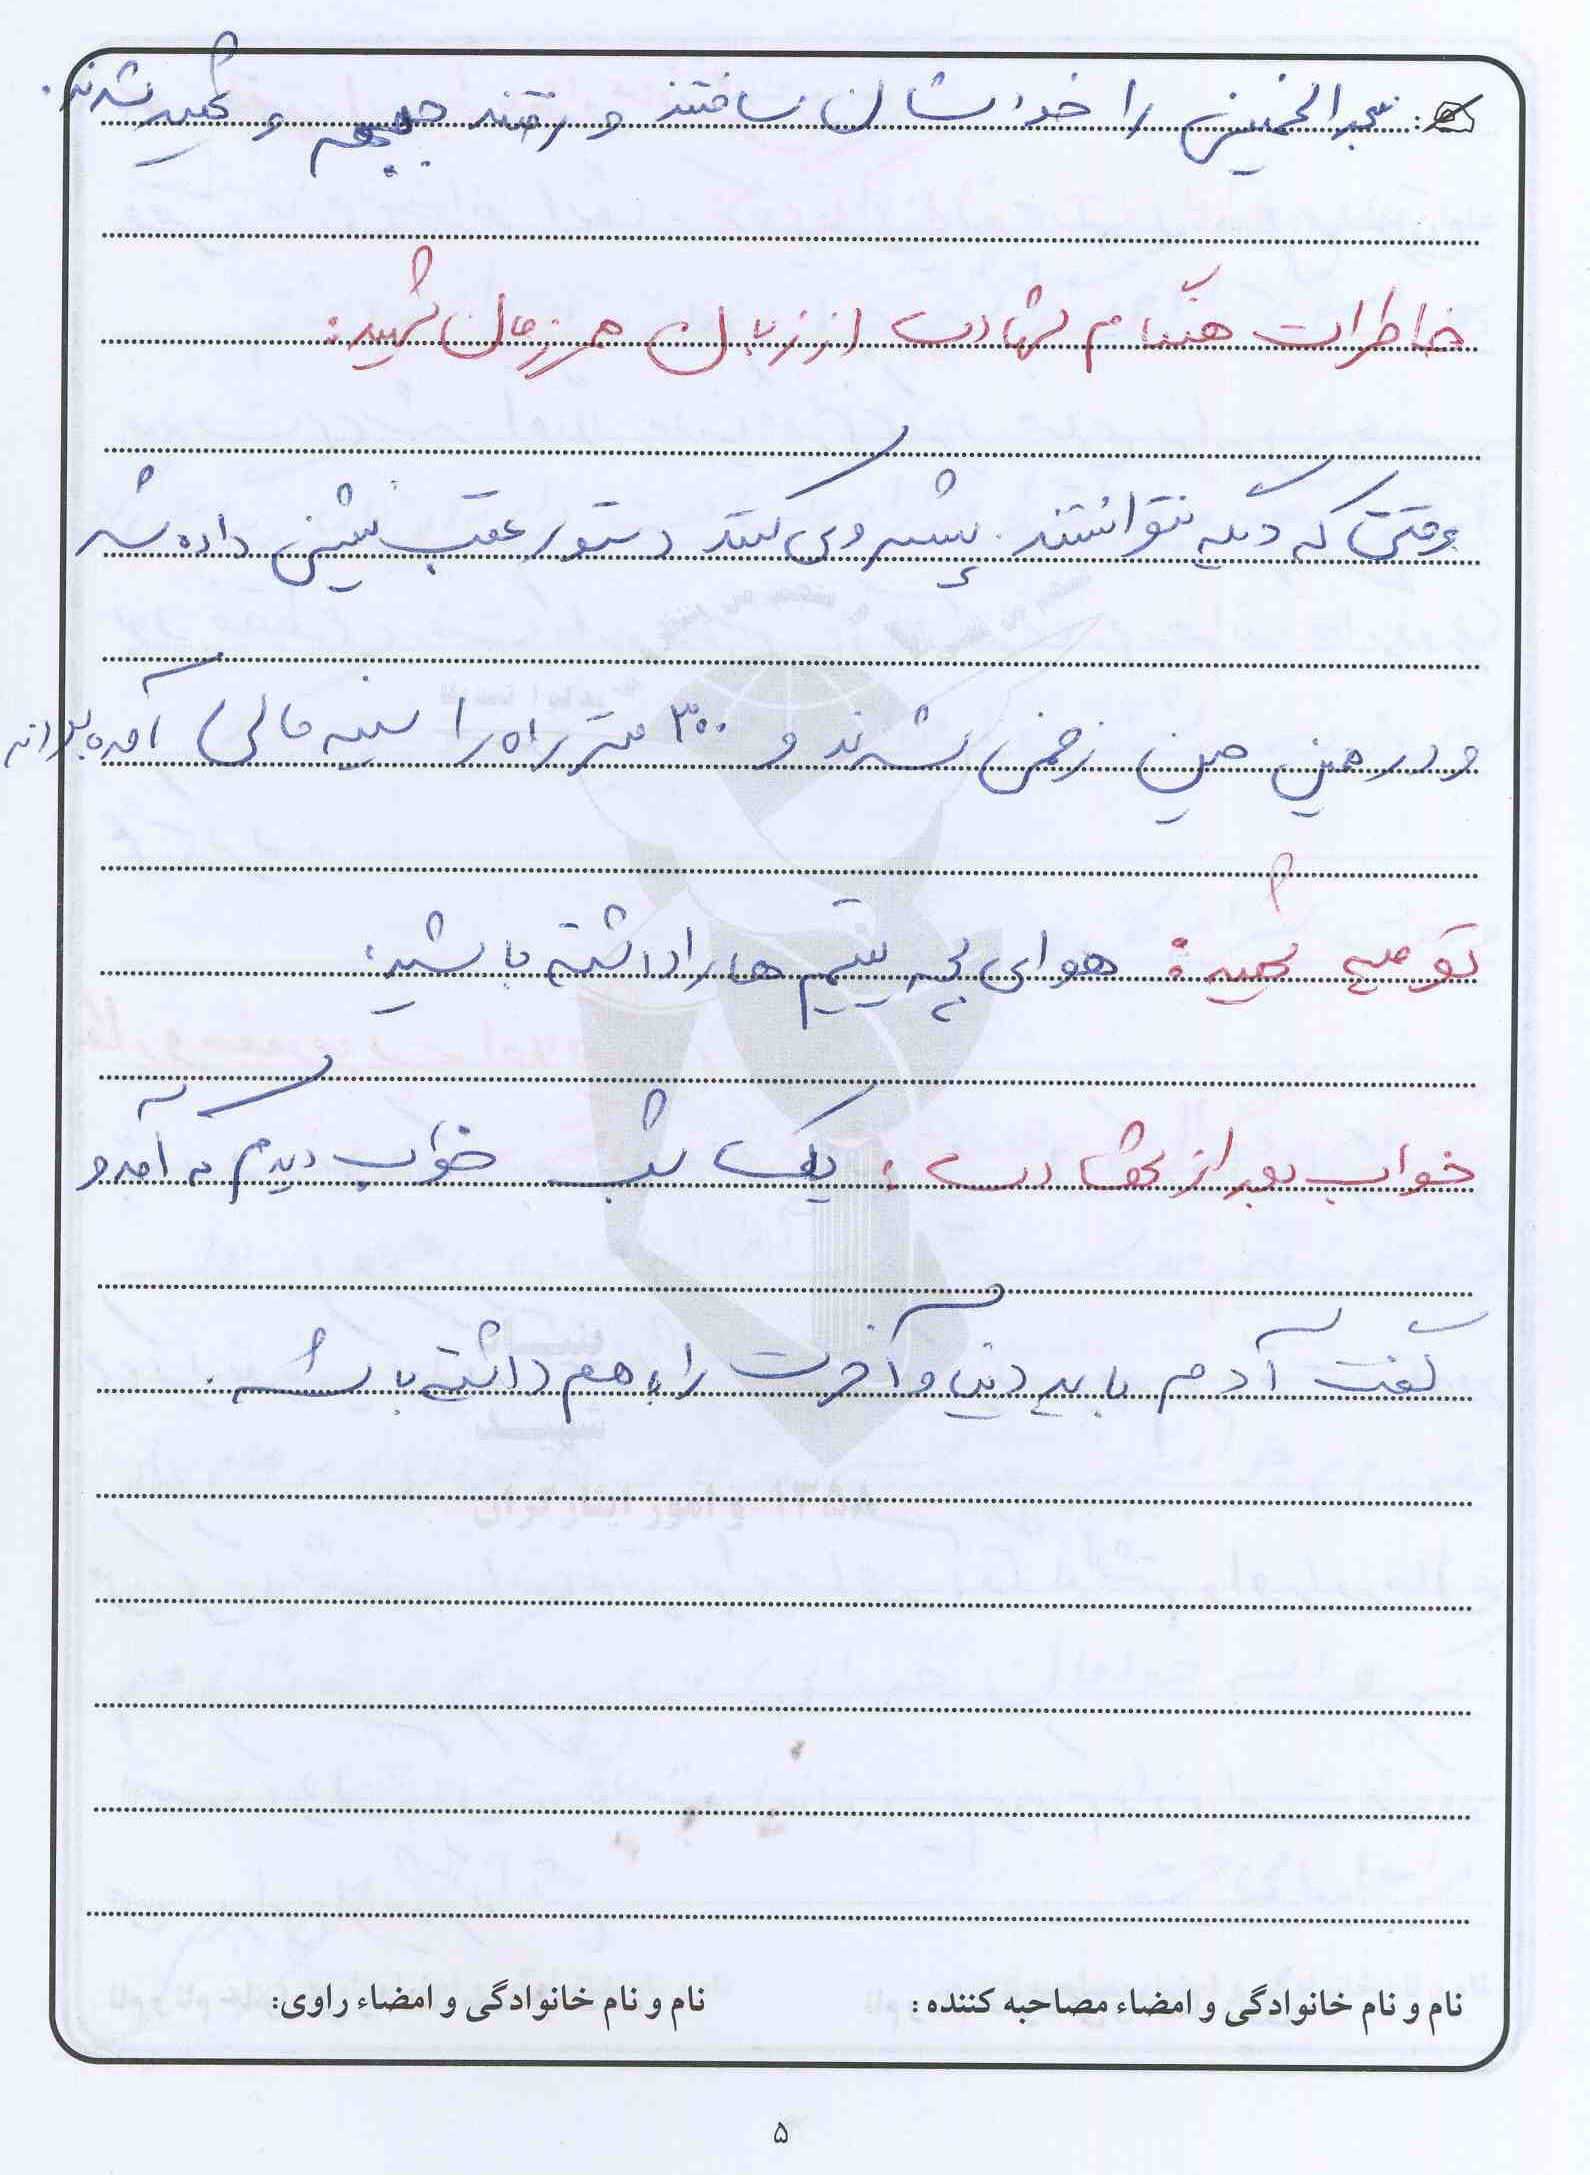 مسجد الخمینی را خودشان ساختند و رفتند جبهه و شهید شدند.
خاطرات هنگام شهادت از زبان همرزمان شهید:
وقتی که دیگه نتوانستند پیشروی کنند دستور عقب نشینی داده شد
و در همین حین زخمی شدند و ۳۰۰ متر راه را سینه مالی آمده بودند
توصیه شهید: هوای بچه یتیم ها را داشته باشید.
خواب بعد از شهادت: یک شب خواب دیدم که آمد و
گفت آدم باید دنیا و آخرت را با هم داشته باشد.
نام و نام خانوادگی و امضاء مصاحبه کننده: نام و نام خانوادگی و امضاء راوی:
۵